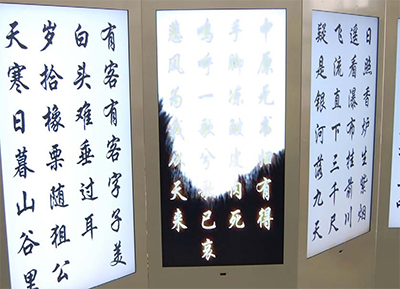 有客有客字子美
白头难垂过耳
岁拾橡栗随狙公
天寒日暮山谷里
中原无书有得
手脚冻皮肉死
呜呼一歌兮已哀
悲风为天来
日照香炉生紫烟
遥看瀑布挂前川
飞流直下三千尺
疑是银河落九天